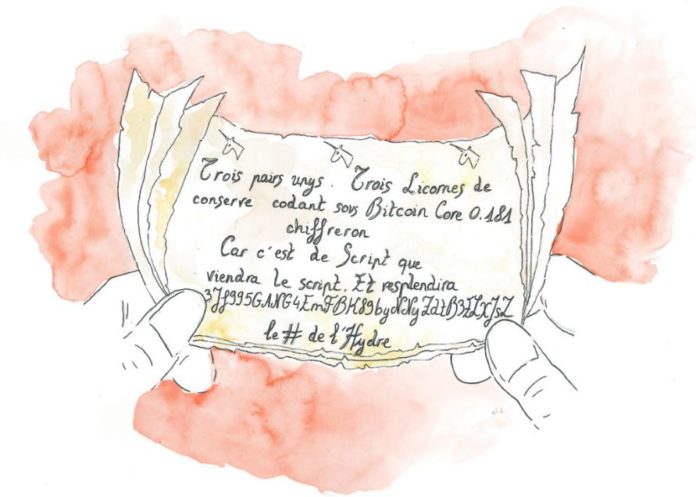 Trois pairs unys. Trois Licornes de
conserve codant sous Bitcoin Core 0.181
chiffreron
Car c'est de Script que
viendra le script. Et resplendira
le # de l'Hydre